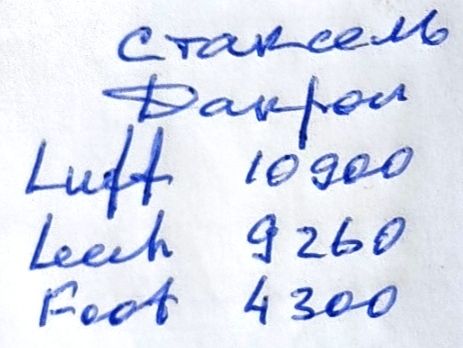 Стаксель
Дакрон
Luff 10900
Leech 9260
Foot 4300